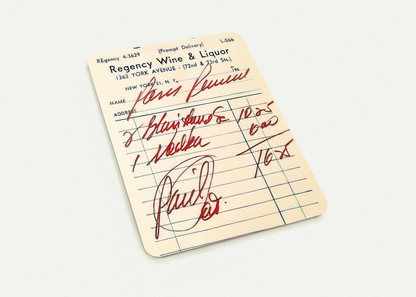 REgency 4-3629 (Prompt Delivery) L-566
Regency Wine & Liquor
1363 YORK AVENUE - (72nd & 73rd Sts.)
NEW YORK 21, N. Y.
NAME
ADDRESS
2 10.25
1 Vodka 6.00
16.25
Paid